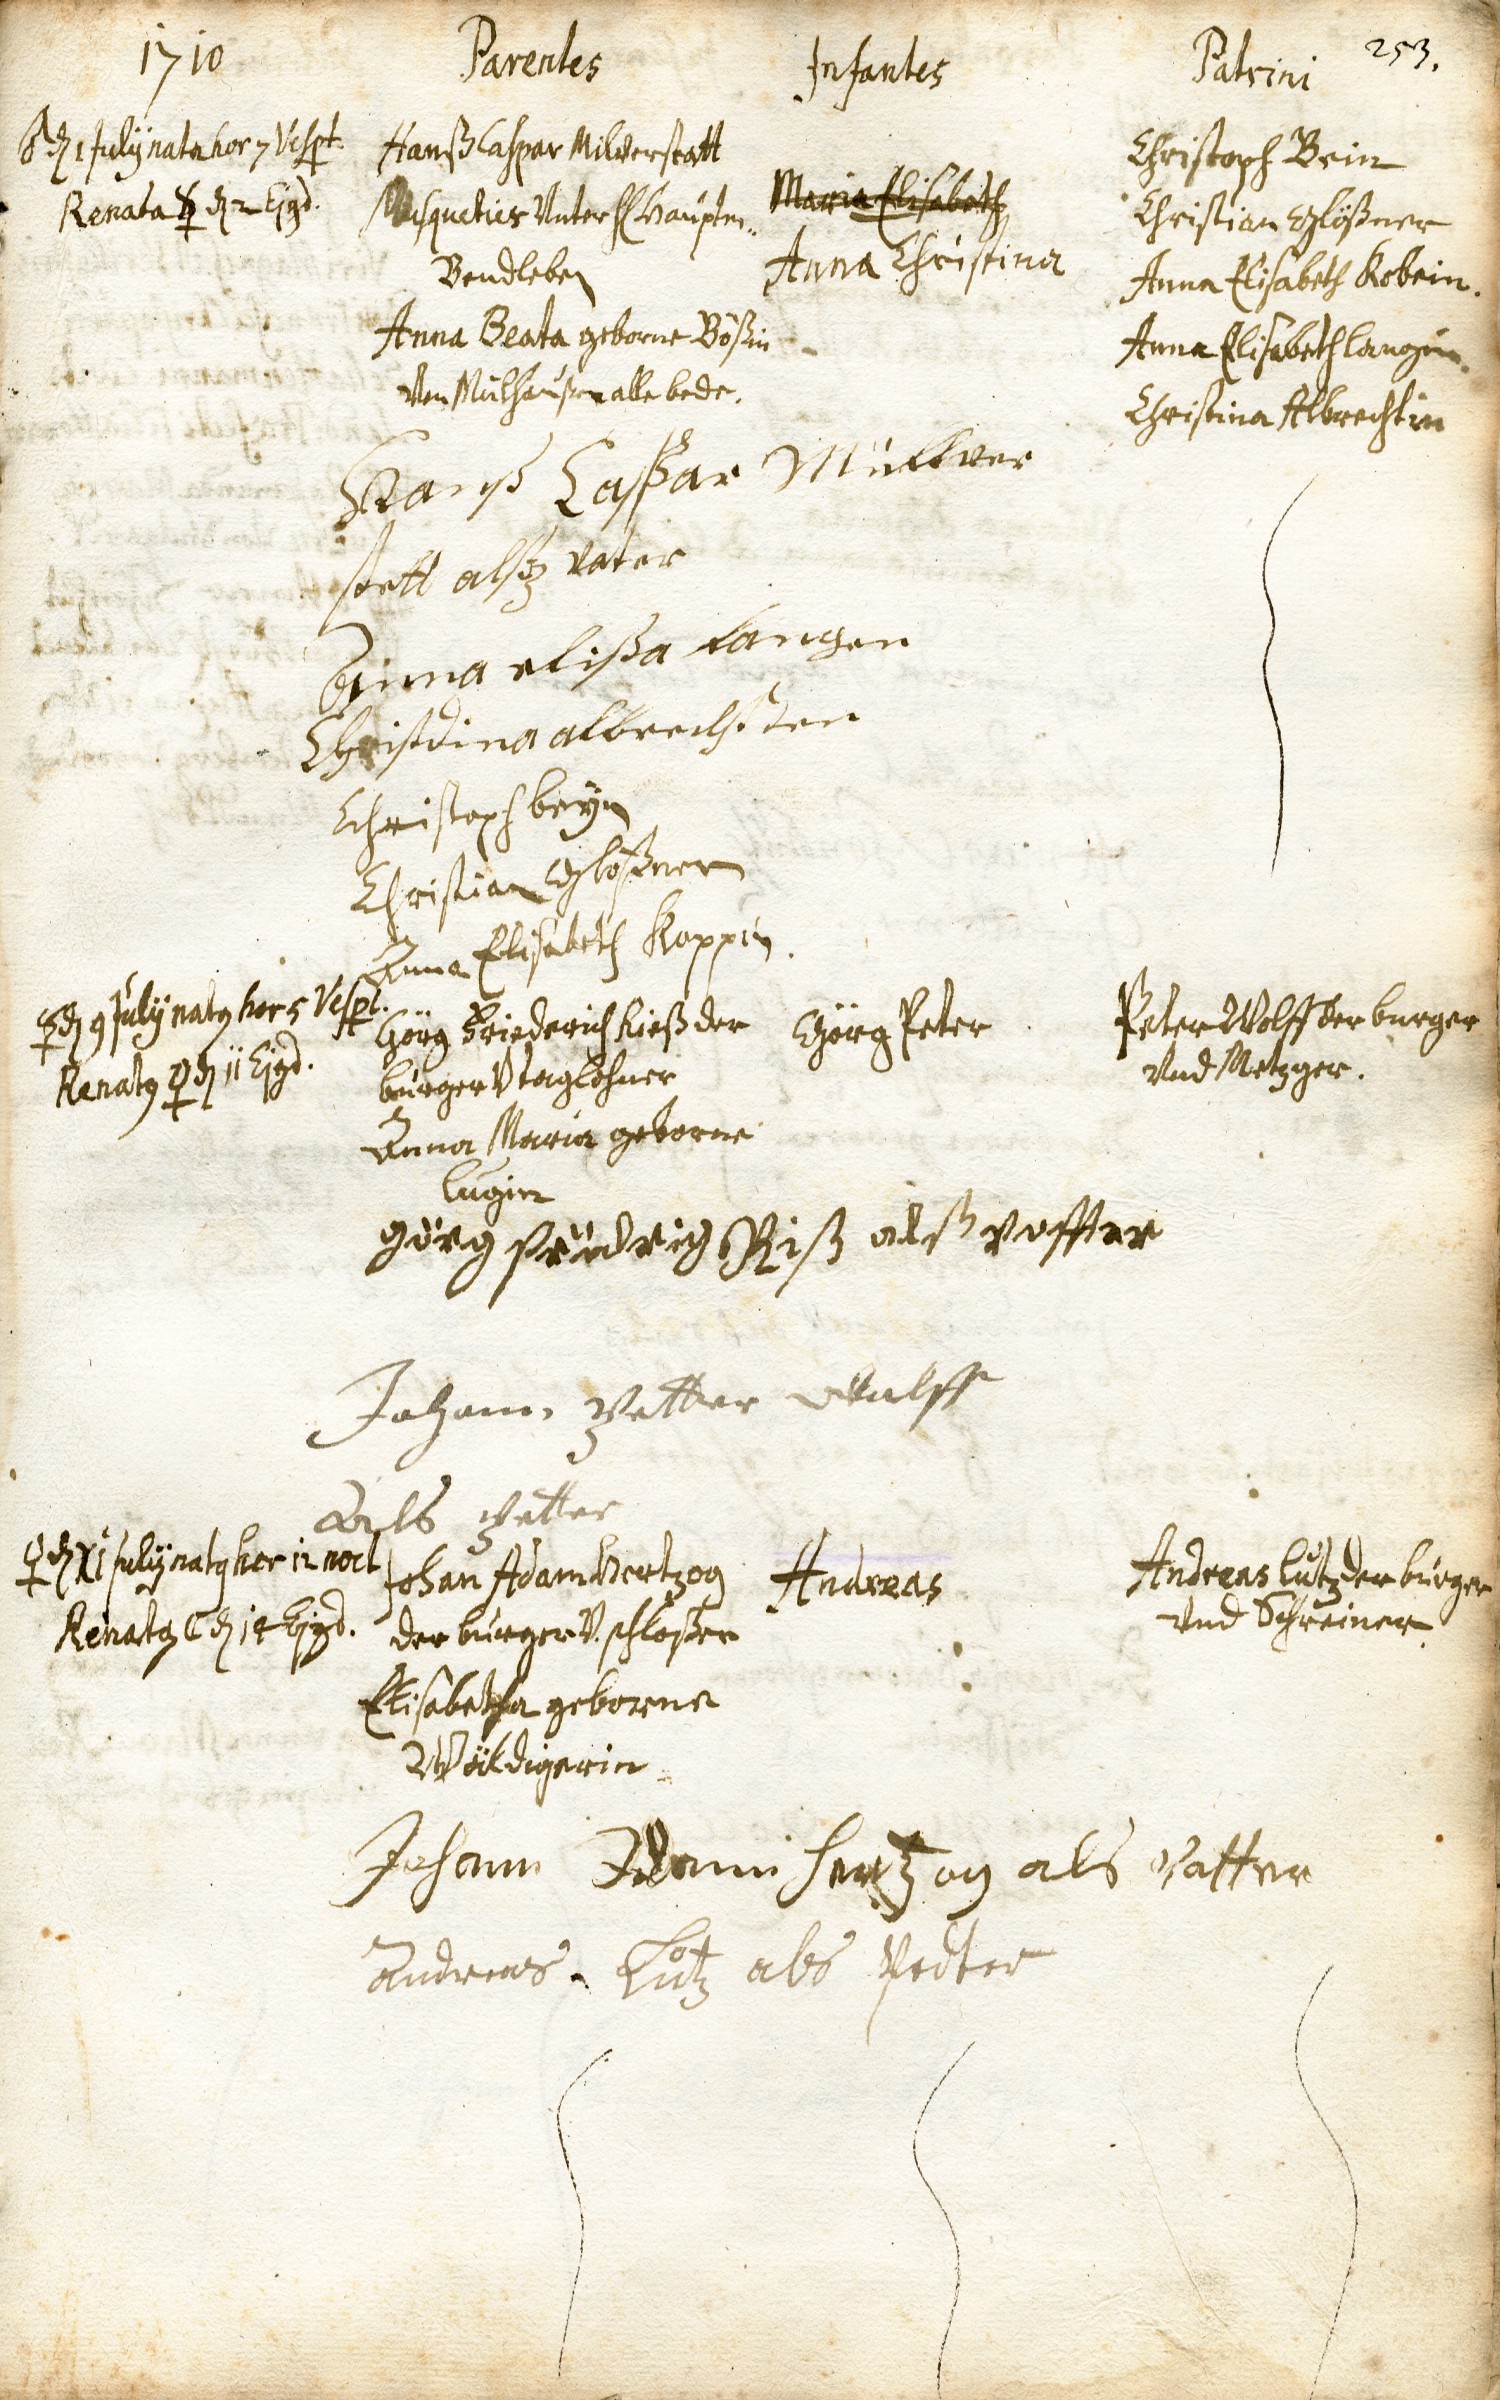 1710
Parentes
Infantes
Patrini
253.
♂ d 1 Julij nata hor 7 Vesp̱t.
Renata ☿ d 2 Ejsd.
Hanß Caspar Milverstatt
Musquetier Unter H Hauptm..
Bendleben
Anna Beata geborne Bößin
Von Mülhaußen alle bede.
Maria Elisabeth
Anna Christina
Christoph Bein
Christian Glößner
Anna Elisabeth Kobein.
Anna Elisabeth Langin.
Christina Albrechtin
Hanß Caßpar Müllver
stett alß vater
Anna elißa langen
Christdina albrechsten
Christoph beyn
Christian Gloßner
Anna Elisabeth Koppin.
☿ d 9 Julij nat9 hor 5 Vesp̱t.
Renat9 ♀ d 11 Ejsd.
Görg Friederich Rieß der
burger V taglohner
Anna Maria geborne
Lugin
Görg Peter
Peter Wolff der burger
Vnd Metzger.
görg fridrich Riß alß vatter
Johann Petter Wulff
Als petter
♀ d XI Julij nat9 hor 12 noct
Renat9 ☾ d 14 Ejsd.
Johan Adam Hertzog
der burger V. schloßer
Elisabetha geborne
Wäldigerin
Andreas
Andreas Lutz der burger
Vnd Schreiner.
Johann Adam hertzog als Vatter
Andreas Lutz als Pedter